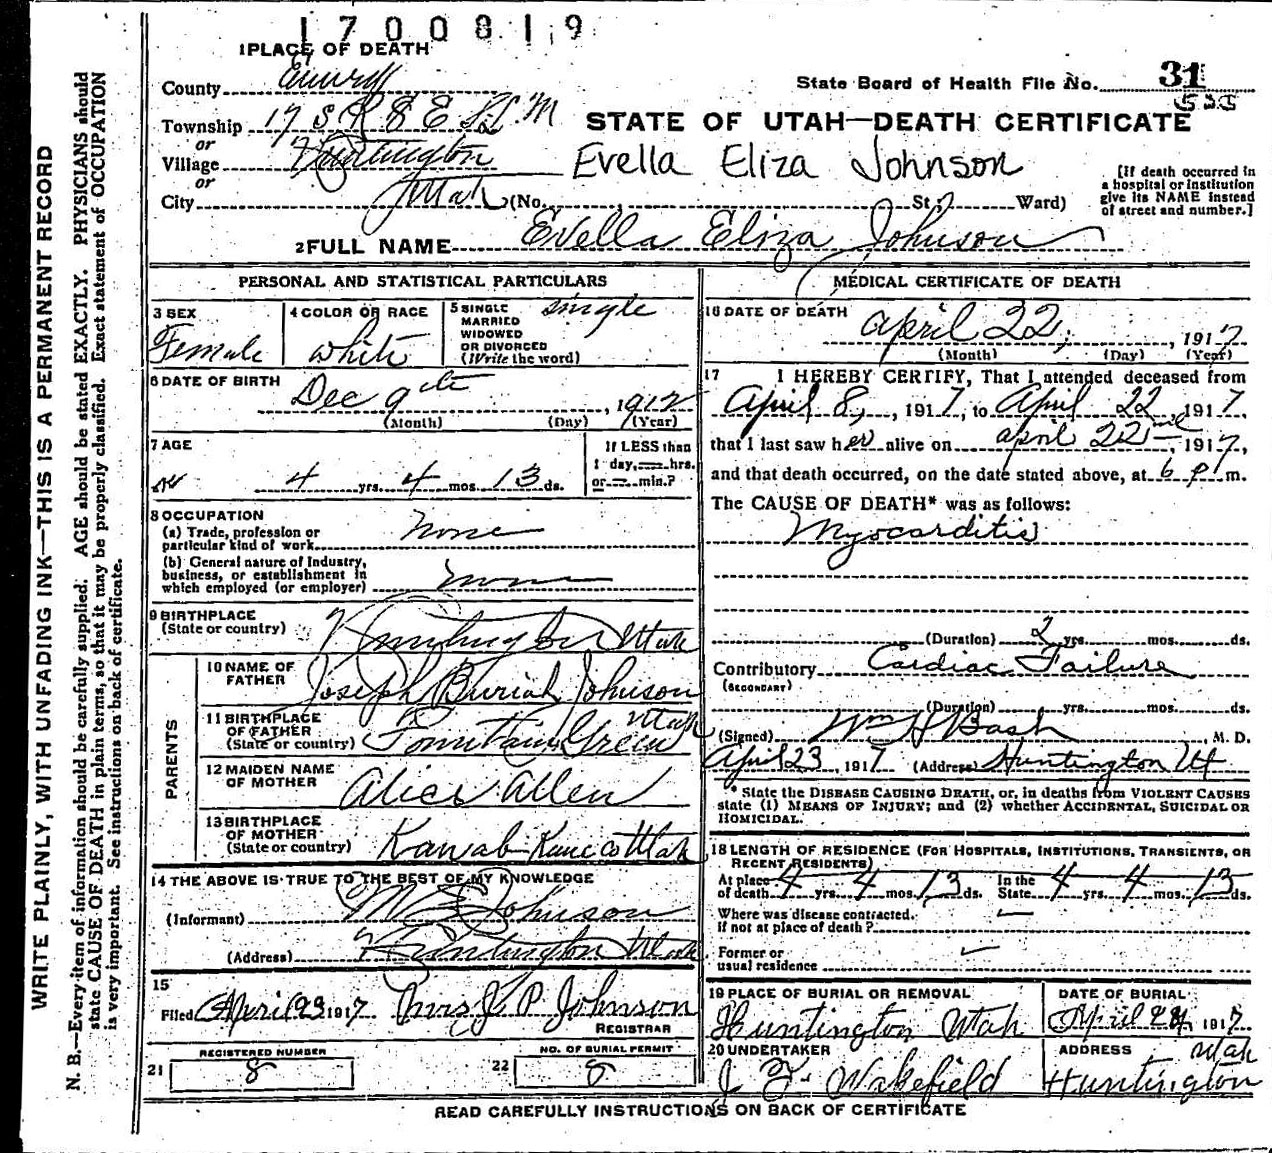 1700819
1 PLACE OF DEATH
County Emery
State Board of Health File No. 31
Township 17 S R 8 E S L M
STATE OF UTAH—DEATH CERTIFICATE
or
Village Huntington
Evella Eliza Johnson
or
City Utah (No. , St.; Ward)
[If death occurred in
a hospital or institution
give its NAME instead
of street and number.]
2 FULL NAME Evella Eliza Johnson
PERSONAL AND STATISTICAL PARTICULARS
3 SEX
Female
4 COLOR OR RACE
White
5 SINGLE
MARRIED
WIDOWED
OR DIVORCED
(Write the word)
single
6 DATE OF BIRTH
Dec 9th, 1912
(Month) (Day) (Year)
7 AGE
4 yrs. 4 mos. 13 ds.
If LESS than
1 day, hrs.
or min.?
8 OCCUPATION
(a) Trade, profession or
particular kind of work none
(b) General nature of Industry,
business, or establishment in
which employed (or employer) none
9 BIRTHPLACE
(State or country) Huntington Utah
PARENTS
10 NAME OF
FATHER Joseph Buriah Johnson
11 BIRTHPLACE
OF FATHER
(State or country) Fountain Green Utah
12 MAIDEN NAME
OF MOTHER Alice Allen
13 BIRTHPLACE
OF MOTHER
(State or country) Kanab Kane co Utah
14 THE ABOVE IS TRUE TO THE BEST OF MY KNOWLEDGE
(Informant) M B Johnson
(Address) Huntington Utah
15
Filed April 23 1917 Mrs J P Johnson
REGISTRAR
21 REGISTERED NUMBER
8
22 NO. OF BURIAL PERMIT
8
MEDICAL CERTIFICATE OF DEATH
16 DATE OF DEATH
April 22, 1917
(Month) (Day) (Year)
17 I HEREBY CERTIFY, That I attended deceased from
April 8, 1917, to April 22, 1917,
that I last saw her alive on april 22nd, 1917,
and that death occurred, on the date stated above, at 6 p m.
The CAUSE OF DEATH* was as follows:
Myocarditis
(Duration) 2 yrs. mos. ds.
Contributory Cardiac Failure
(SECONDARY)
(Duration) yrs. mos. ds.
(Signed) Wm H Bash M. D.
April 23, 1917 (Address) Huntington Ut
* State the DISEASE CAUSING DEATH, or, in deaths from VIOLENT CAUSES
state (1) MEANS OF INJURY; and (2) whether ACCIDENTAL, SUICIDAL OR
HOMICIDAL.
18 LENGTH OF RESIDENCE (FOR HOSPITALS, INSTITUTIONS, TRANSIENTS, OR
RECENT RESIDENTS)
At place
of death 4 yrs. 4 mos. 13 ds. In the
State 4 yrs. 4 mos. 13 ds.
Where was disease contracted,
if not at place of death?
Former or
usual residence
19 PLACE OF BURIAL OR REMOVAL
Huntington Utah
DATE OF BURIAL
April 24, 1917
20 UNDERTAKER
Wakefield
ADDRESS
Utah
Huntington
READ CAREFULLY INSTRUCTIONS ON BACK OF CERTIFICATE
WRITE PLAINLY, WITH UNFADING INK—THIS IS A PERMANENT RECORD
N. B.—Every item of information should be carefully supplied. AGE should be stated EXACTLY. PHYSICIANS should
state CAUSE OF DEATH in plain terms, so that it may be properly classified. Exact statement of OCCUPATION
is very important. See instructions on back of certificate.